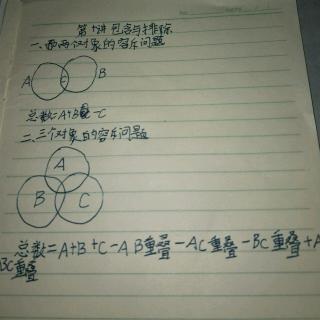 第十讲 包含与排除
一、两个对象的容斥问题
A C B
总数=A+B-C
二、三个对象的容斥问题
A
B C
总数=A+B+C-AB重叠-AC重叠-BC重叠+A
BC重叠